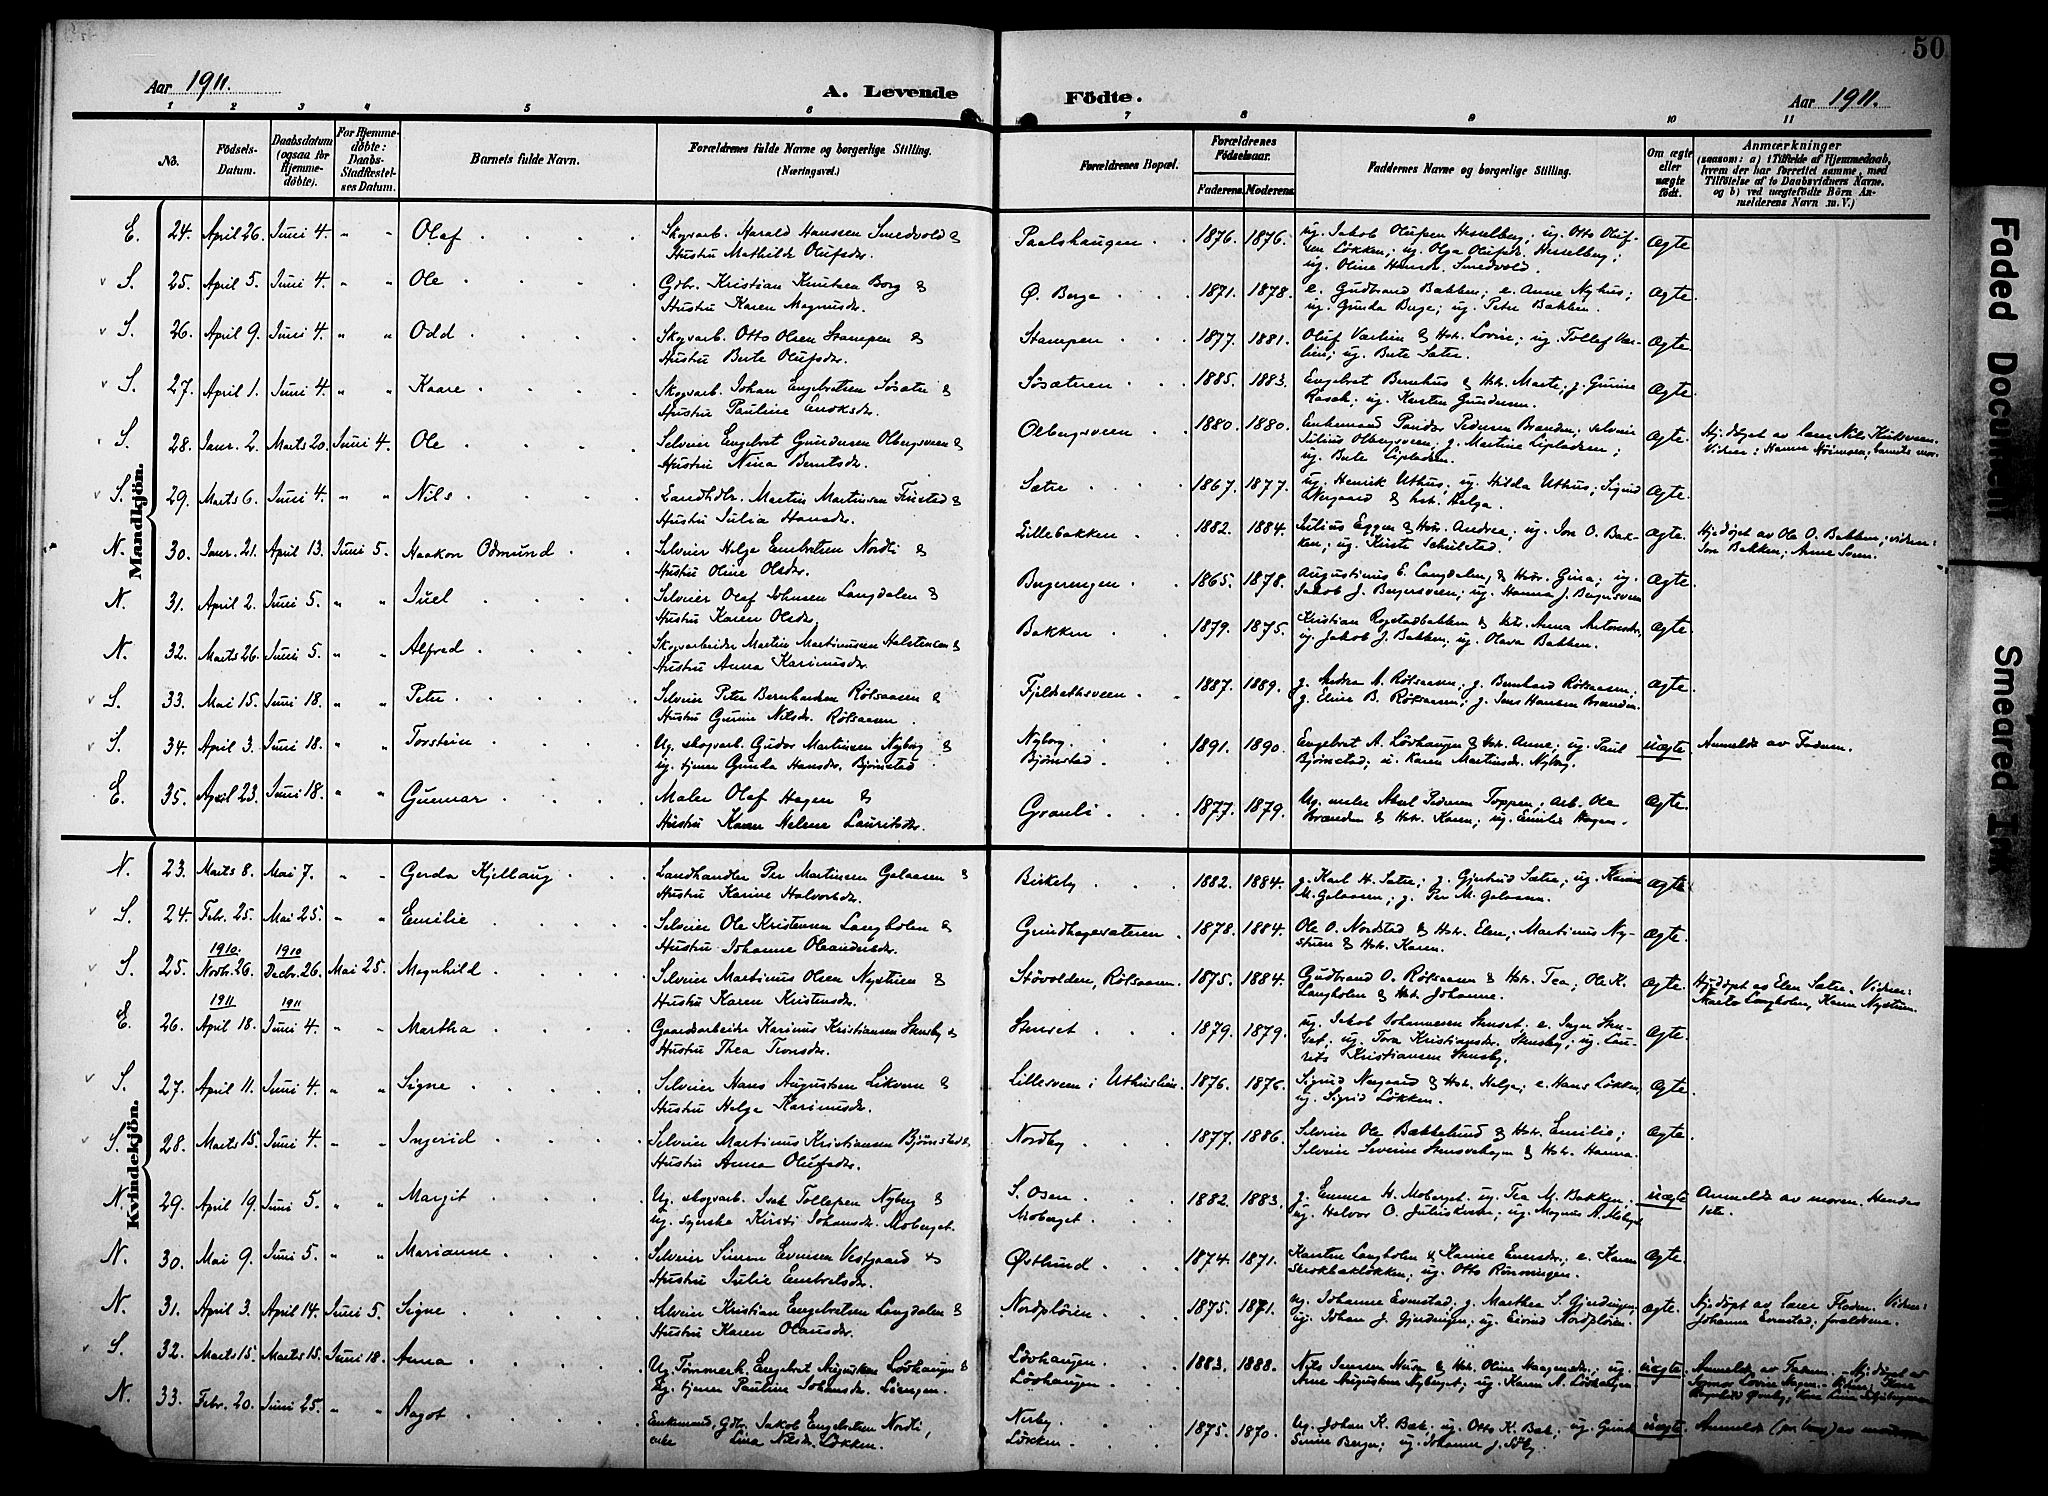 50
Aar 1911. A. Levende Födte. Aar 1911.
1 2 3 4 5 6 7 8 9 10 11
No.
Födsels-
Datum.
Daabsdatum
(ogsaa for
Hjemme-
döbte).
For Hjemme-
döbte:
Daabs-
Stadfæstel-
ses Datum.
Barnets fulde Navn.
Forældrenes fulde Navne og borgerlige Stilling.
(Næringsvei.)
Forældrenes Bopæl.
Forældrenes
Födselsaar.
Faderens. Moderens.
Faddernes Navne og borgerlige Stilling.
Om ægte
eller
uægte
födt.
Anmærkninger
(saasom: a) i Tilfælde af Hjemmedaab,
hvem der har forrettet samme, med
Tilföielse af to Daabsvidners Navne.
og b) ved uægtefödte Börn An-
melderens Navn m. V.)
Mandkjön.
E. 24. April 26. Juni 4. " " Olaf Skogsarb. Harald Hanssen Smedvold &
Hustru Mathilde Olufsdr. Paalshaugen 1876. 1876. ug. Jakob Olufsen Hesselberg; ug. Otto Oluf-
sen Løkken; ug. Olga Olufsdr. Hesselberg;
ug. Oline Hansdr. Smedvold. Ægte
S. 25. April 5. Juni 4. " " Ole Gdbr. Kristian Knutsen Borg &
Hustru Karen Magnusdr. Ø. Berge 1871. 1878. e. Gudbrand Bakken; e. Anne Nyhus;
ug. Gunda Berge; ug. Peter Bakken. Ægte.
S. 26. April 9. Juni 4. " " Odd Skogsarb. Otto Olsen Stampen &
Hustru Berte Olufsdr. Stampen 1877. 1881. Oluf Værlien & Hstr. Lovise; ug. Tollef Vær-
lien; ug. Berte Sætre. Ægte.
S. 27. April 1. Juni 4. " " Kaare Skogsarb. Johan Engebretsen Søsætre &
Hustru Pauline Enoksdr. Søsæteren 1885. 1883. Engebret Bernhus & Hstr. Marte; g. Gunine
Rasch; ug. Karsten Gundersen. Ægte.
S. 28. Janr. 2. Marts 20. Juni 4. Ole Selveier Engebret Gundersen Olbergsveen &
Hustru Nina Berntsdr. Olbergsveen 1880. 1880. Enkemand Peder Pedersen Brænden; selveier
Julius Olbergsveen; g. Martine Lipladsen;
ug. Berte Lipladsen. Ægte. Hj.døpt av lærer Nils
S. 29. Marts 6. Juni 4. " " Nils Landhdlr. Martin Martinsen Finstad &
Hustru Julia Hansdr. Sætre 1867. 1877. ug. Henrik Uthus; ug. Hilda Uthus; Sigurd
Nergaard & hst. Helga. Ægte.
N. 30. Janr. 21. April 13. Juni 5. Haakon Odmund Selveier Helge Embretsen Nordli &
Hustru Oline Olsdr. Lillebakken 1882. 1884. Julius Eggen & Hstr. Andrea; ug. Jon O. Bak-
ken; ug. Kirsti Skulstad. Ægte. Hjedøpt av Ole O. Bakken; vidner:
Jon Bakken; Anne
N. 31. April 2. Juni 5. " " Juel Selveier Olaf Johnsen Langdalen &
Hustru Karen Olsdr. Bergerengen 1865. 1878. Augustinus E. Langdalen & Hstr. Gina; ug.
Jakob J. Bergersveen; ug. Hanna J. Bergersveen Ægte.
N. 32. Marts 26. Juni 5. " " Alfred Skogsarbeider Martin Martinussen Halstensen &
Hustru Anna Karinusdr. Bakken 1879. 1875. Kristian Rogstadbakken & hstr. Anna Antonsdr.
ug. Jakob J. Bakken; ug. Olava Bakken. Ægte.
S. 33. Mai 15. Juni 18. " " Peter Selveier Peter Bernhardsen Rølsaasen &
Hustru Gunine Nilsdr. Rølsaasen. Fjeldsætsveen 1887. 1889. g. Andrea A. Rølsaasen; g. Bernhard Rølsaasen;
g. Eline B. Rølsaasen; g. Jens Hansen Brænden. Ægte.
S. 34. April 3. Juni 18. " " Torstein Ug. skogsarb. Gudor Martinsen Nyborg &
ug. tjener Gunda Hansdr. Bjørnstad Nyborg.
Bjørnstad. 1891. 1890. Engebret A. Løvhaugen & Hstr. Anne; ug. Paul
Bjørnstad; u. Karen Martinsdr. Nyborg. uægte Anmeldt av Faderen.
E. 35. April 23. Juni 18. " " Gunnar Maler Olaf Hagen &
Hustru Karen Nelsine Lauritsdr. Granli 1877. 1879. Ug. maler Aksel Pedersen Toppen; arb. Ole
Brænden & Hstr. Karen; ug. Emilie Hagen. Ægte.
Kvindekjön.
N. 23. Marts 8. Mai 7. " " Gerda Kjellaug Landhandler Per Martinsen Galaasen &
Hustru Karine Halvorsdr. Birkeby 1882. 1884. g. Karl H. Sætre; g. Gjertrud Sætre; ug. Karen
M. Galaasen; g. Per M. Galaasen. Ægte
S. 24. Febr. 25. Mai 25. " " Emilie Selveier Ole Kristensen Langholen &
Hustru Johanne Oleandersdr. Grindhagesæteren 1878. 1884. Ole O. Nordstad & Hstr. Elen; Martinus Ny-
stuen & Hstr. Karen. Ægte.
1910 1910
S. 25. Novbr. 26. Decbr. 26. Mai 25. Magnhild Selveier Martinus Olsen Nystuen &
Hustru Karen Kristensdr. Støvolden, Rølsaasen 1875. 1884. Gudbrand O. Rølsaasen & Hstr. Tea; Ole K.
Langholen & Hst. Johanne. Ægte. Hjedøpt av Elen Sætre. Vidner:
Marte Langholen, Karen Nystuen.
1911 1911
E. 26. April 18. Juni 4. " " Martha Gaardsarbeider Karinus Kristiansen Stensby &
Hustru Thea Tronsdr. Stenset 1879. 1879. ug. Jakob Johannesen Stenset. e. Inger Sten-
set; ug. Tora Kristiansdr. Stensby; ug. Lau-
rits Kristiansen Stensby. Ægte.
S. 27. April 11. Juni 4. " " Signe Selveier Hans Augustsen Likveen &
Hustru Helga Karinusdr. Lillesveen i Uthuslien 1876. 1876. Sigurd Nergaard & Hstr. Helga; e. Hans Løkken;
ug. Sigrid Løkken. Ægte.
S. 28. Marts 15. Juni 4. " " Ingerid Selveier Martinus Kristiansen Bjørnstad &
Hustru Anna Olufsdr. Nordby 1877. 1886. Selveier Ole Bækkelund & Hstr. Emilie;
Selveier Severin Stensvehagen & Hstr. Hanna. Ægte
N. 29. April 19. Juni 5. " " Margit Ug. skogsarb. Isak Tollefsen Nyberg &
ug. syerske Kirsti Johansdr. Moberget. S. Osen
Moberget 1882. 1883. g. Emma H. Moberget. ug. Tea M. Bakken;
ug. Halvor O. ; ug. Magnus A. Moberget uægte Anmeldt av moren. Hendes
1ste.
N. 30. Mai 9. Juni 5. " " Marianne Selveier Simen Evensen Vestgaard &
Hustru Julie Embretsdr. Østlund 1874. 1871. Karsten Langholen & Karine Evensdr.; e. Karen
Skrokbækløkken; ug. Otto Rønningen. Ægte.
N. 31. April 3. April 14. Juni 5. Signe Selveier Kristian Engebretsen Langdalen &
Hustru Karen Olausdr. Nordpløien 1875. 1871. ug. Johanne Evenstad; g. Marthea S. Gjerdingen;
ug. Johan J. Gjerdingen; ug. Eivind Nordpløien. ægte Hjedøpt av lærer Floden. Vidner:
Johanne Evenstad; forældrene.
S. 32. Marts 15. Marts 15. Juni 18. Anna Ug. Tømmerh. Engebret Augustsen Løvhaugen &
Ug. tjener Pauline Johansdr. Løvhaugen.
Løvhaugen. 1883. 1888. Nils Jensen & Hstr. Oline Haagensdr.; ug.
Arne Augustsen Nyberget; ug. Karen A. Løvhaugen uægte. Anmeldt av Faderen. Hj.døpt av
N. 33. Febr. 20. Juni 25. " " Aagot Enkemand, Gdbr. Jakob Engebretsen Nordli,
enke Lina Nilsdr. Løkken. Nerby
Løkken 1875. 1870. Ug. Johan K. Bak. ug. Otto K. Bak, ug. Gunda
Berger; ug. Johanne J. uægte Anmeldt av
Faded Document
Smeared Ink